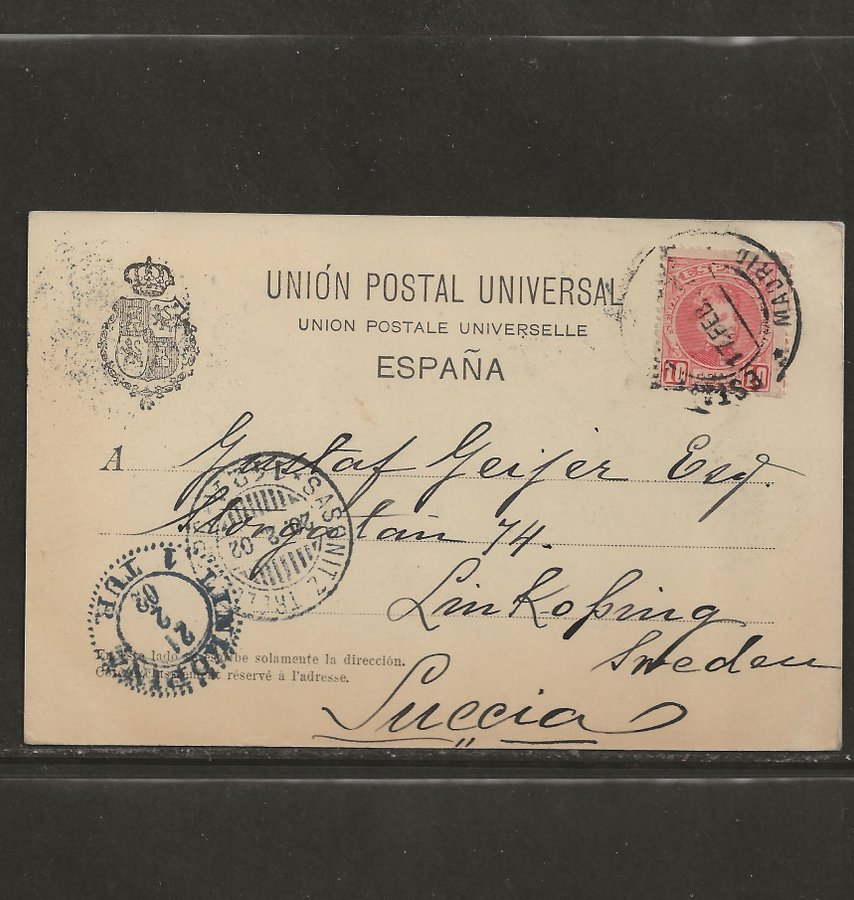 UNIÓN POSTAL UNIVERSAL
UNION POSTALE UNIVERSELLE
ESPAÑA
MADRID
17 FEB
10
A Gustaf Geijer Esq.
Storgatan 74.
Linköping
Sweden
Succia
SASSNITZ TRELLEBORG
20 2 02
LINKÖPING
1 TUR
21 2 02
lado solamente la dirección.
réservé à l'adresse.